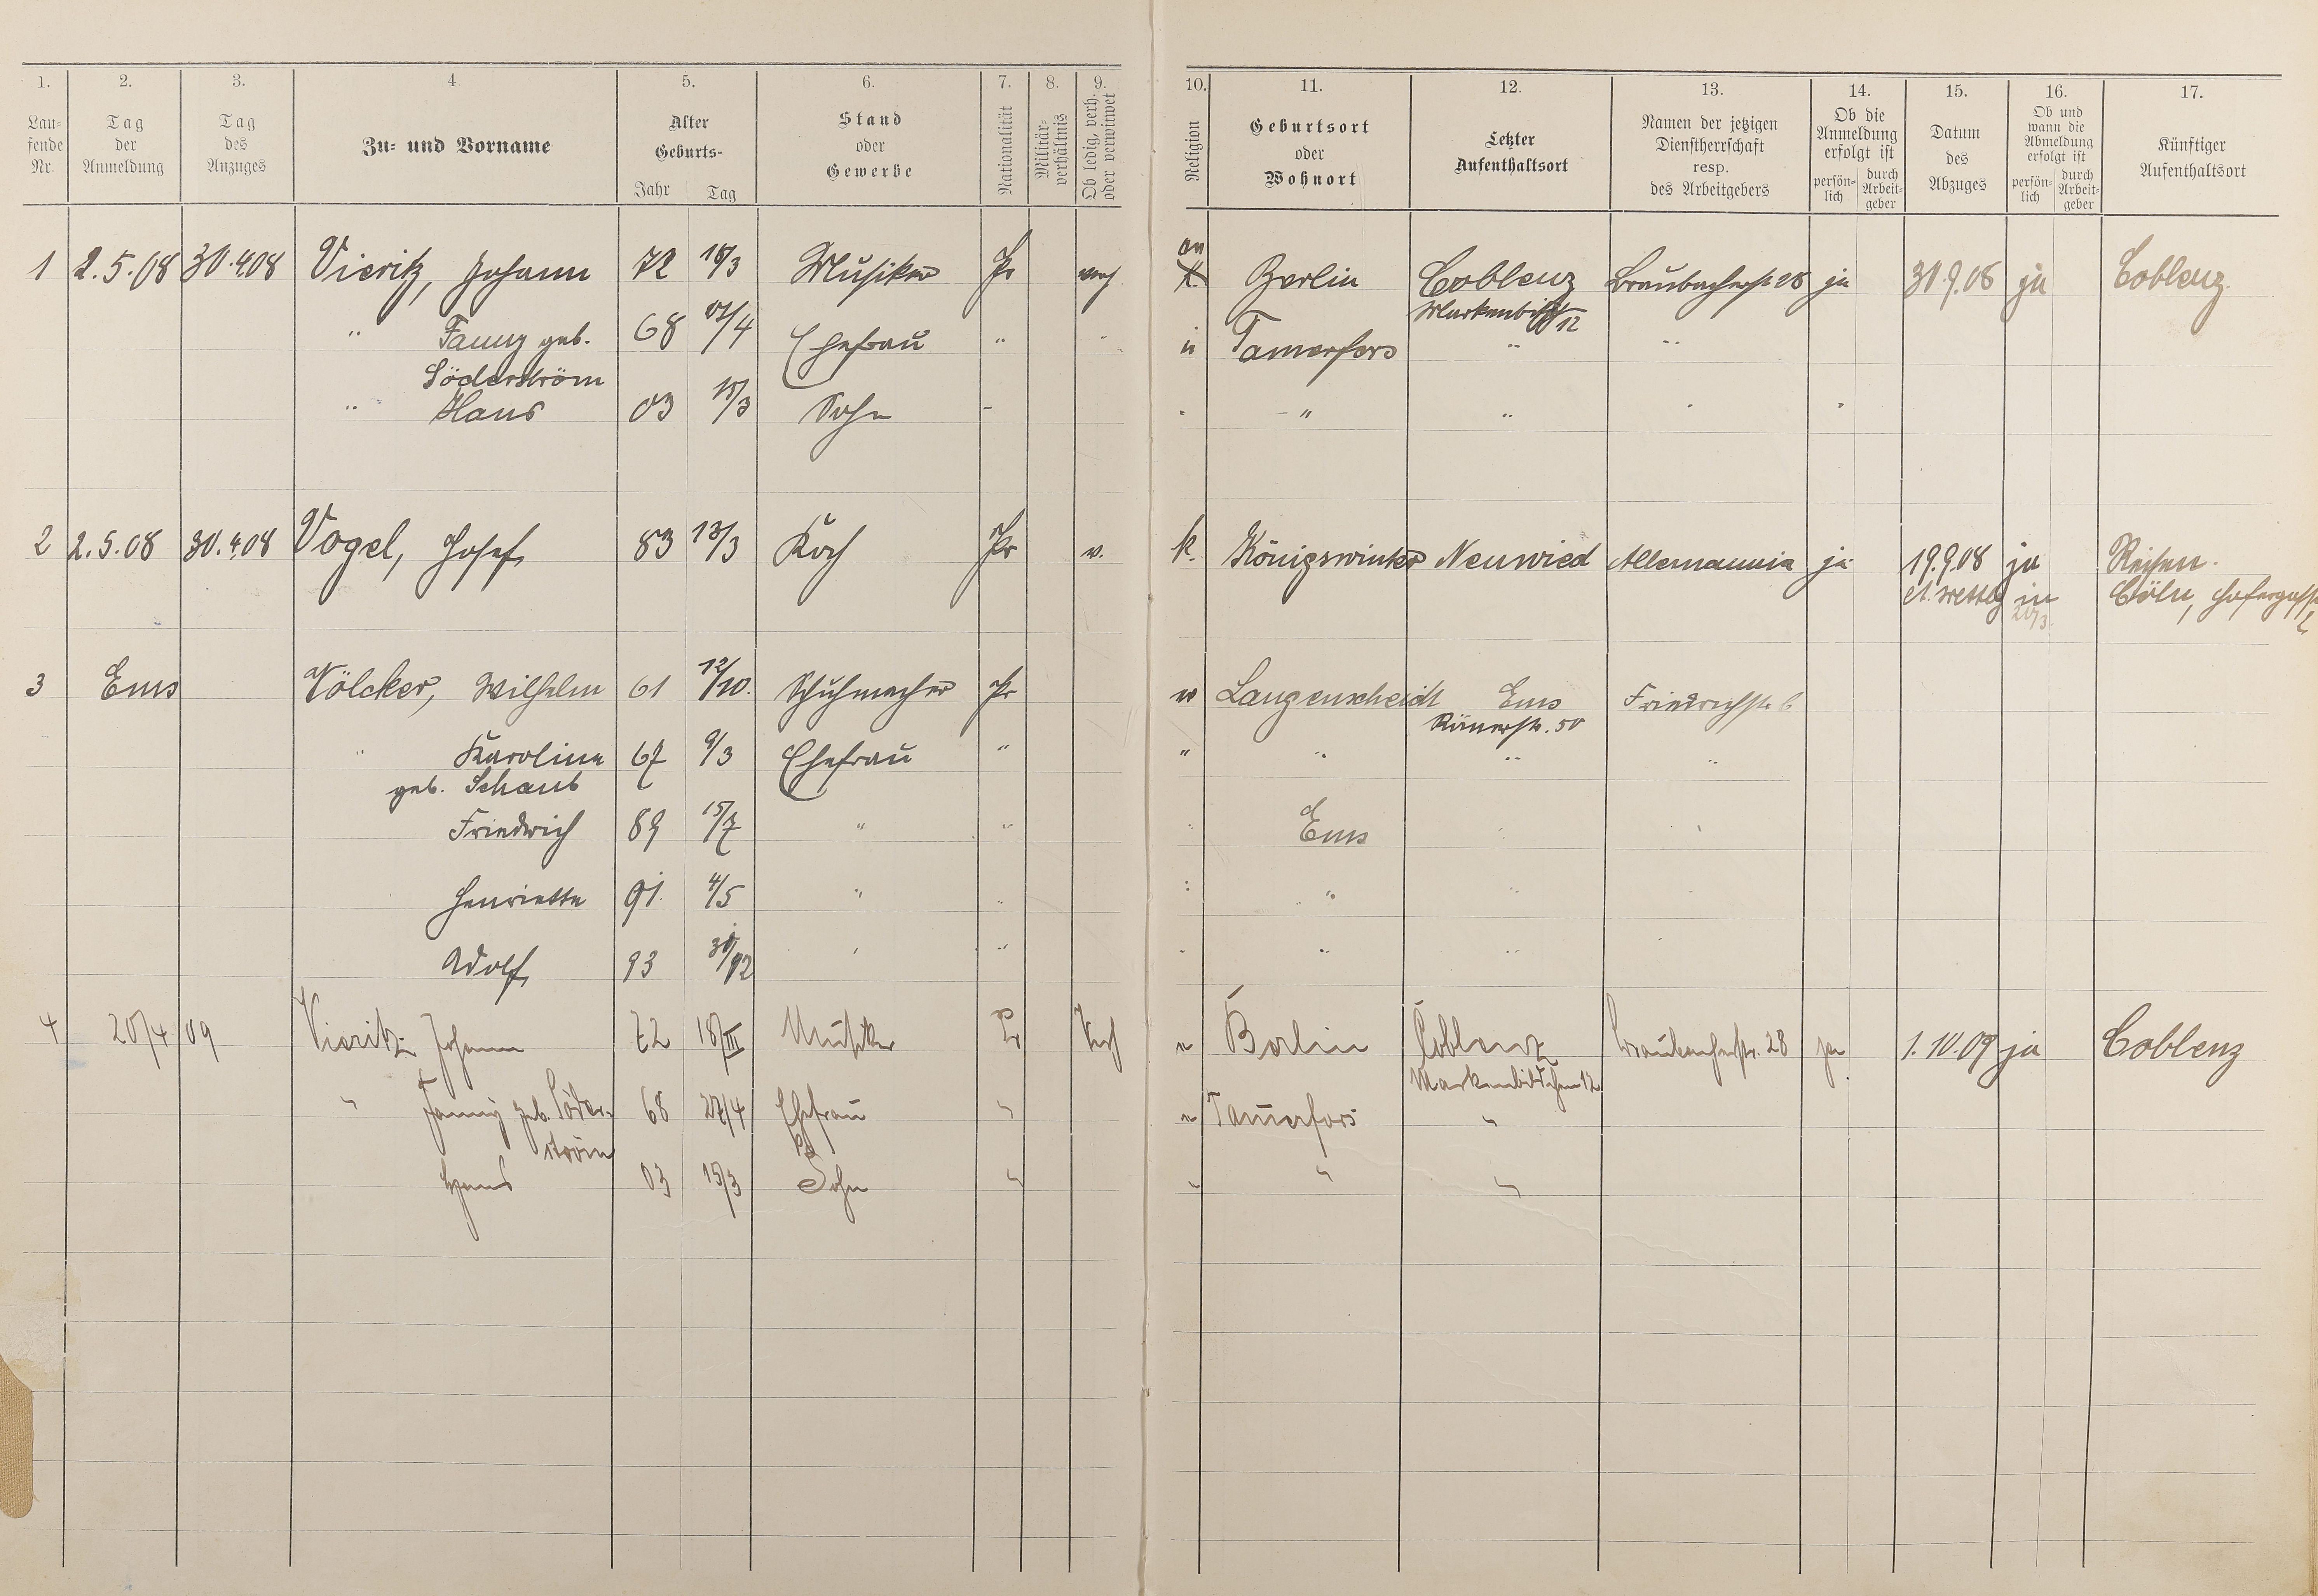 1. 2. 3. 4. 5. 6. 7. 8. 9. 10. 11. 12. 13. 14. 15. 16. 17.
Lau-
fende
Nr.
Tag
der
Anmeldung
Tag
des
Anzuges
Zu- und Vorname
Alter
Geburts-
Jahr Tag
Stand
oder
Gewerbe
Nationalität
Militär-
verhältnis
Ob ledig, verh.
oder verwitwet
Religion
Geburtsort
oder
Wohnort
Letzter
Aufenthaltsort
Namen der jetzigen
Dienstherrschaft
resp.
des Arbeitgebers
Ob die
Anmeldung
erfolgt ist
persön-
lich
durch
Arbeit-
geber
Datum
des
Abzuges
Ob und
wann die
Abmeldung
erfolgt ist
persön-
lich
durch
Arbeit-
geber
Künftiger
Aufenthaltsort
1 2.5.08 30.4.08 Vieritz, Johann 72 18/3 Musiker Pr verh Berlin Coblenz Braubacherstr 28 ja 31.9.08 ja Coblenz.
12
" Fanny geb. 68 /4 Ehefrau " " Tamerfors " "
Söderström
" Hans 03 15/3 Sohn " " "
2 2.5.08 30.4.08 Vogel, Josef 83 13/3 Koch Pr v. k. Königswinter Neuwied Allemannia ja 19.9.08 ja Reisen.
Cöln,
3 Ems Völcker, Wilhelm 61 12/10. Schuhmacher Pr Langenscheidt Ems Friedrichstr. 6
Römerstr. 50
" Karoline 67 9/3 Ehefrau " " " " "
geb. Schaub
Friedrich 89 15/7 " " Ems
Henriette 91. 4/5 " " "
Adolf 93 /12 " " "
4 20/4 09 Vieritz Johann 72 18/III Musiker Pr Verh Berlin Coblenz Braubacherstr. 28 ja 1.10.09 ja Coblenz
Markenbildchen 12
" Fanny geb. Söder- 68 27/4 Ehefrau " Tamerfors "
ström
Hans 03 15/3 Sohn " " "